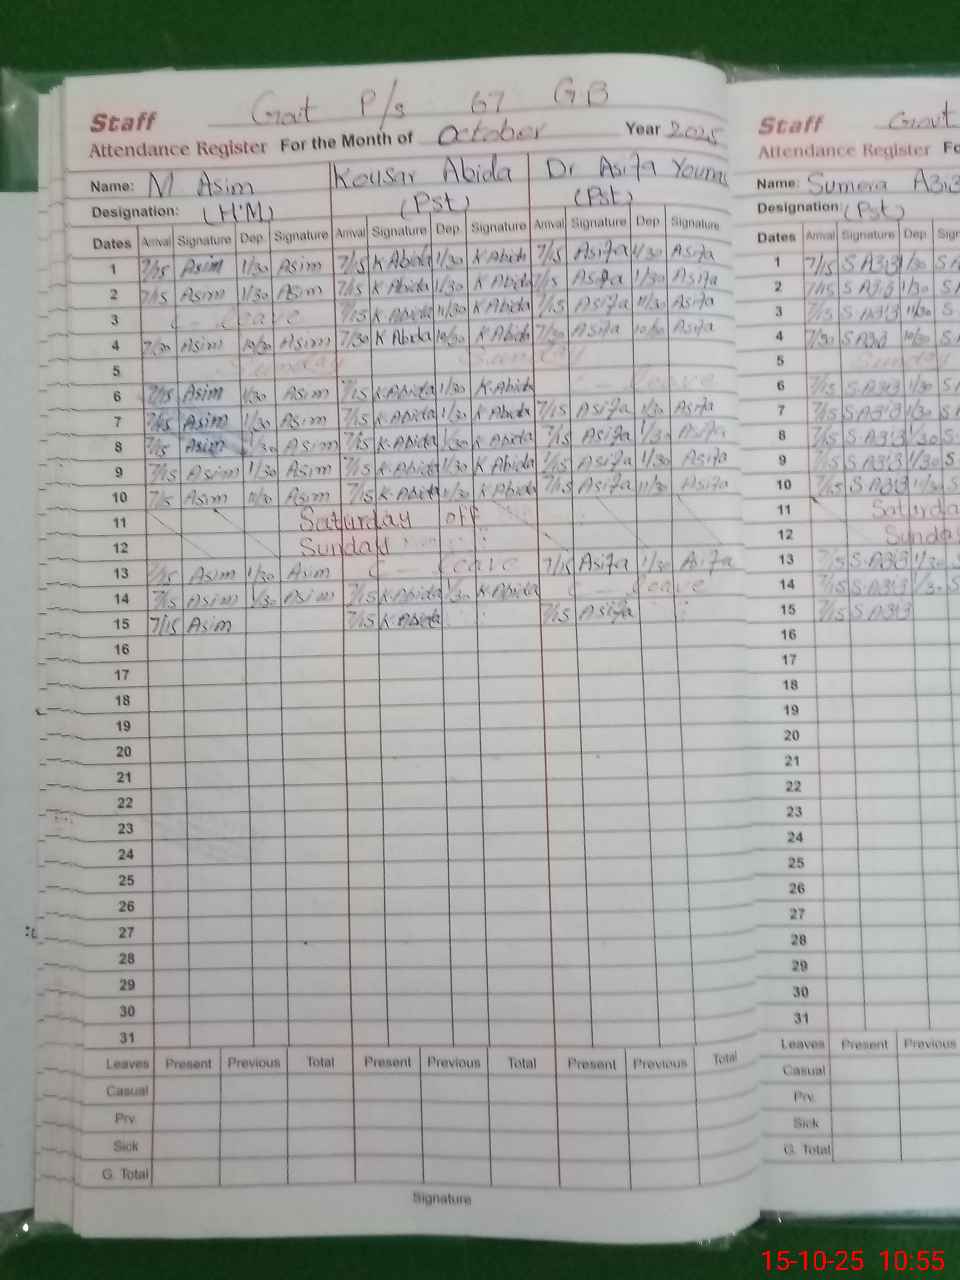 Govt P/s 67 G.B
Staff
Attendance Register For the Month of October Year 2025
Name: M Asim Kousar Abida Dr Asifa Younas
Designation: (H.M) (Pst) (Pst)
Dates Arrival Signature Dep. Signature Arrival Signature Dep. Signature Arrival Signature Dep. Signature
1 7/15 Asim 1/30 Asim 7/15 K Abida 1/30 K Abida 7/15 Asifa 1/30 Asifa
2 7/15 Asim 1/30 Asim 7/15 K Abida 1/30 K Abida 7/15 Asifa 1/30 Asifa
3 leave 7/15 K Abida 11/30 K Abida 7/15 Asifa 11/30 Asifa
4 7/30 Asim 10/30 Asim 7/30 K Abida 10/30 K Abida 7/30 Asifa 10/30 Asifa
5 Sunday Sunday
6 7/15 Asim 1/30 Asim 7/15 K.Abida 1/30 K.Abida leave
7 7/15 Asim 1/30 Asim 7/15 K.Abida 1/30 K Abida 7/15 Asifa 1/30 Asifa
8 7/15 Asim 1/30 Asim 7/15 K.Abida 1/30 K Abida 7/15 Asifa 1/30 Asifa
9 7/15 Asim 1/30 Asim 7/15 K.Abida 1/30 K Abida 7/15 Asifa 1/30 Asifa
10 7/15 Asim 11/30 Asim 7/15 K.Abida 11/30 K Abida 7/15 Asifa 11/30 Asifa
11 Saturday off
12 Sunday
13 7/15 Asim 1/30 Asim leave 7/15 Asifa 1/30 Asifa
14 7/15 Asim 1/30 Asim 7/15 K.Abida 1/30 K.Abida leave
15 7/15 Asim 7/15 K.Abida 7/15 Asifa
16
17
18
19
20
21
22
23
24
25
26
27
28
29
30
31
Leaves Present Previous Total Present Previous Total Present Previous Total
Casual
Prv.
Sick
G. Total
Signature
Staff Govt
Attendance Register Fo
Name: Sumera
Designation: (Pst)
Dates Arrival Signature Dep. Sign
1 7/15 S A3i3 1/30 S
2 7/15 S A3i3 1/30 S
3 7/15 S A3i3 11/30 S
4 7/30 S A3i3 10/30 S
5 Sunday
6 7/15 S.A3i3 1/30 S
7 7/15 S.A3i3 1/30 S
8 7/15 S.A3i3 1/30 S
9 7/15 S.A3i3 1/30 S
10 7/15 S.A3i3 11/30 S
11 Saturda
12 Sunda
13 7/15 S.A3i3 1/30 S
14 7/15 S.A3i3 1/30 S
15 7/15 S A3i3
16
17
18
19
20
21
22
23
24
25
26
27
28
29
30
31
Leaves Present Previous
Casual
Prv.
Sick
G. Total
15-10-25 10:55